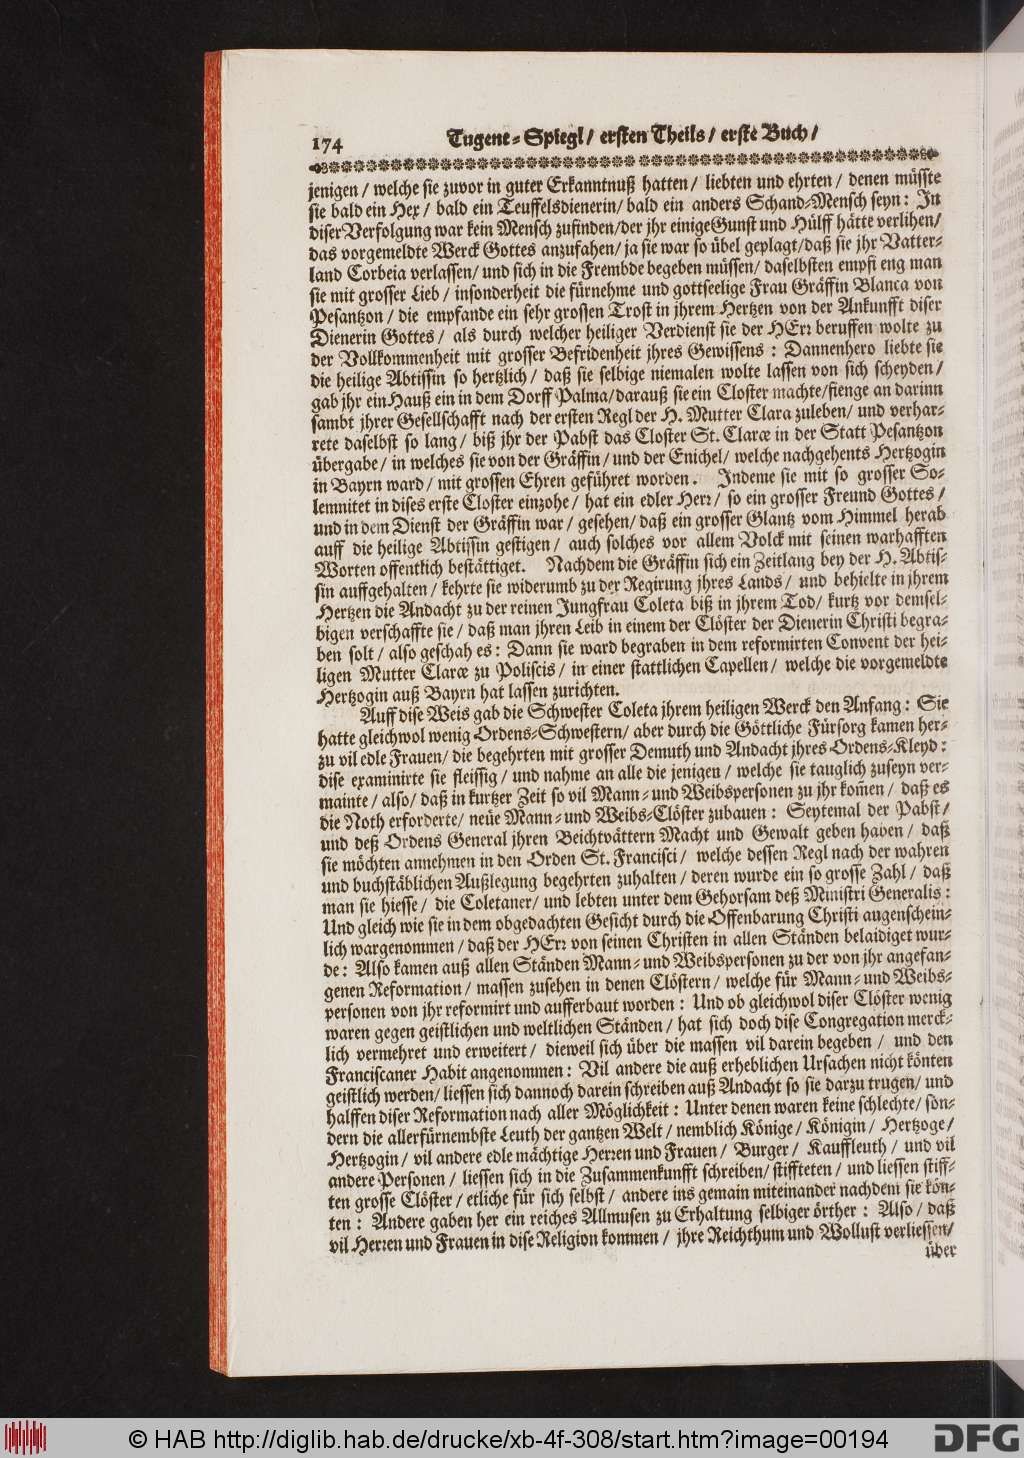 174
Tugent-Spiegl/ ersten Theils/ erste Buch/
jenigen/ welche sie zuvor in guter Erkanntnuß hatten/ liebten und ehrten/ denen müsste
sie bald ein Hex/ bald ein Teuffelsdienerin/ bald ein anders Schand-Mensch seyn: In
diser Verfolgung war kein Mensch zufinden/ der jhr einige Gunst und Hülff hätte verlihen/
das vorgemeldte Werck Gottes anzufahen/ ja sie war so übel geplagt/ daß sie jhr Vatter-
land Corbeia verlassen/ und sich in die Frembde begeben müssen/ daselbsten empfieng man
sie mit grosser Lieb/ insonderheit die fürnehme und gottseelige Frau Gräffin Blanca von
Pesantzon/ die empfande ein sehr grossen Trost in jhrem Hertzen von der Ankunfft diser
Dienerin Gottes/ als durch welcher heiliger Verdienst sie der HErr beruffen wolte zu
der Vollkommenheit mit grosser Befridenheit jhres Gewissens: Dannenhero liebte sie
die heilige Abtissin so hertzlich/ daß sie selbige niemalen wolte lassen von sich scheyden/
gab jhr ein Hauß ein in dem Dorff Palma/ darauß sie ein Closter machte/ fienge an darinn
sambt jhrer Gesellschafft nach der ersten Regl der H. Mutter Clara zuleben/ und verhar-
rete daselbst so lang/ biß jhr der Pabst das Closter St. Claræ in der Statt Pesantzon
übergabe/ in welches sie von der Gräffin/ und der Enichel/ welche nachgehents Hertzogin
in Bayrn ward/ mit grossen Ehren geführet worden. Indeme sie mit so grosser So-
lemnitet in dises erste Closter einzohe/ hat ein edler Herr/ so ein grosser Freund Gottes/
und in dem Dienst der Gräffin war/ gesehen/ daß ein grosser Glantz vom Himmel herab
auff die heilige Abtissin gestigen/ auch solches vor allem Volck mit seinen warhafften
Worten offentlich bestättiget. Nachdem die Gräffin sich ein Zeitlang bey der H. Abtis-
sin auffgehalten/ kehrte sie widerumb zu der Regirung jhres Lands/ und behielte in jhrem
Hertzen die Andacht zu der reinen Jungfrau Coleta biß in jhrem Tod/ kurtz vor demsel-
bigen verschaffte sie/ daß man jhren Leib in einem der Clöster der Dienerin Christi begra-
ben solt/ also geschah es: Dann sie ward begraben in dem reformirten Convent der hei-
ligen Mutter Claræ zu Poliscis/ in einer stattlichen Capellen/ welche die vorgemeldte
Hertzogin auß Bayrn hat lassen zurichten.
Auff dise Weis gab die Schwester Coleta jhrem heiligen Werck den Anfang: Sie
hatte gleichwol wenig Ordens-Schwestern/ aber durch die Göttliche Fürsorg kamen her-
zu vil edle Frauen/ die begehrten mit grosser Demuth und Andacht jhres Ordens-Kleyd:
dise examinirte sie fleissig/ und nahme an alle die jenigen/ welche sie tauglich zuseyn ver-
mainte/ also/ daß in kurtzer Zeit so vil Mann- und Weibspersonen zu jhr kom̃en/ daß es
die Noth erforderte/ neue Mann- und Weibs-Clöster zubauen: Seytemal der Pabst/
und deß Ordens General jhren Beichtvättern Macht und Gewalt geben haben/ daß
sie möchten annehmen in den Orden St. Francisci/ welche dessen Regl nach der wahren
und buchstäblichen Außlegung begehrten zuhalten/ deren wurde ein so grosse Zahl/ daß
man sie hiesse/ die Coletaner/ und lebten unter dem Gehorsam deß Ministri Generalis:
Und gleich wie sie in dem obgedachten Gesicht durch die Offenbarung Christi augenschein-
lich wargenommen/ daß der HErr von seinen Christen in allen Ständen belaidiget wur-
de: Also kamen auß allen Ständen Mann- und Weibspersonen zu der von jhr angefan-
genen Reformation/ massen zusehen in denen Clöstern/ welche für Mann- und Weibs-
personen von jhr reformirt und aufferbaut worden: Und ob gleichwol diser Clöster wenig
waren gegen geistlichen und weltlichen Ständen/ hat sich doch dise Congregation merck-
lich vermehret und erweitert/ dieweil sich über die massen vil darein begeben/ und den
Franciscaner Habit angenommen: Vil andere die auß erheblichen Ursachen nicht könten
geistlich werden/ liessen sich dannoch darein schreiben auß Andacht so sie darzu trugen/ und
halffen diser Reformation nach aller Möglichkeit: Unter denen waren keine schlechte/ son-
dern die allerfürnembste Leuth der gantzen Welt/ nemblich Könige/ Königin/ Hertzoge/
Hertzogin/ vil andere edle mächtige Herren und Frauen/ Burger/ Kauffleuth/ und vil
andere Personen/ liessen sich in die Zusammenkunfft schreiben/ stiffteten/ und liessen stiff-
ten grosse Clöster/ etliche für sich selbst/ andere ins gemain miteinander nachdem sie kön-
ten: Andere gaben her ein reiches Allmusen zu Erhaltung selbiger örther: Also/ daß
vil Herren und Frauen in dise Religion kommen/ jhre Reichthum und Wollust verliessen/
über
© HAB http://diglib.hab.de/drucke/xb-4f-308/start.htm?image=00194
DFG